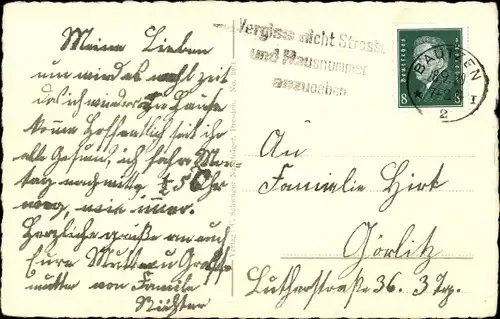 Meine Lieben
nun wird es wohl Zeit
daß ich wieder zu Hause
komme Hoffentlich seit ihr
alle Gesund, ich fahre Mon-
tag nachmittg ½5 Uhr
weg, wie immer.
Herzliche Grüße an euch
Eure Mutter u Groß-
mutter von Familie
Richter
Vergiss nicht Strasse
und Hausnummer
anzugeben
Deutsches Reich
8 8
BAUTZEN
2
An
Familie Hirt
Görlitz
Lutherstraße 36. 3 Trp.